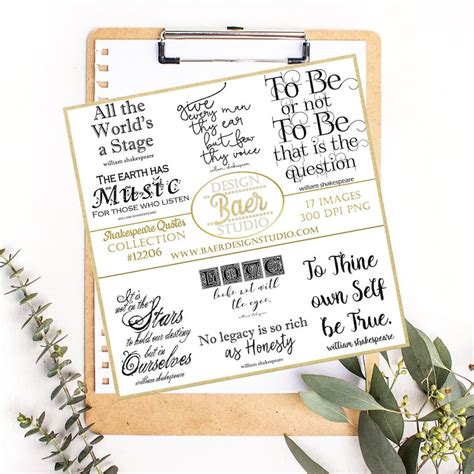 All the
World's
a Stage
william shakespeare
give
every man
thy ear
but few
thy voice
To Be
or not
To Be
that is the
question
william shakespeare
THE EARTH HAS
MUSIC
FOR THOSE WHO LISTEN
WILLIAM SHAKESPEARE
DESIGN
Baer
STUDIO
Shakespeare Quotes
COLLECTION
#12206
17 IMAGES
300 DPI PNG
WWW.BAERDESIGNSTUDIO.COM
It is
not in the
Stars
to hold our destiny
but in
Ourselves
william shakespeare
LOVE
looks not with
the eyes,
No legacy is so rich
as Honesty
william shakespeare
To Thine
own Self
be True.
william shakespeare